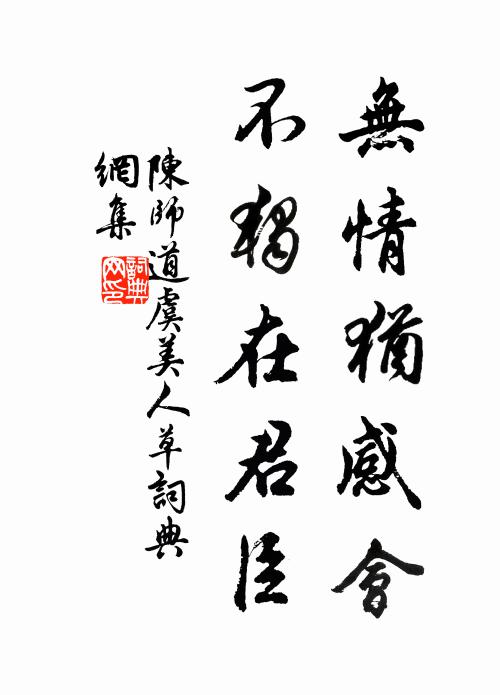 無情猶感會
不獨在君臣
陳師道虞美人草詞典
網集
詞典
网印